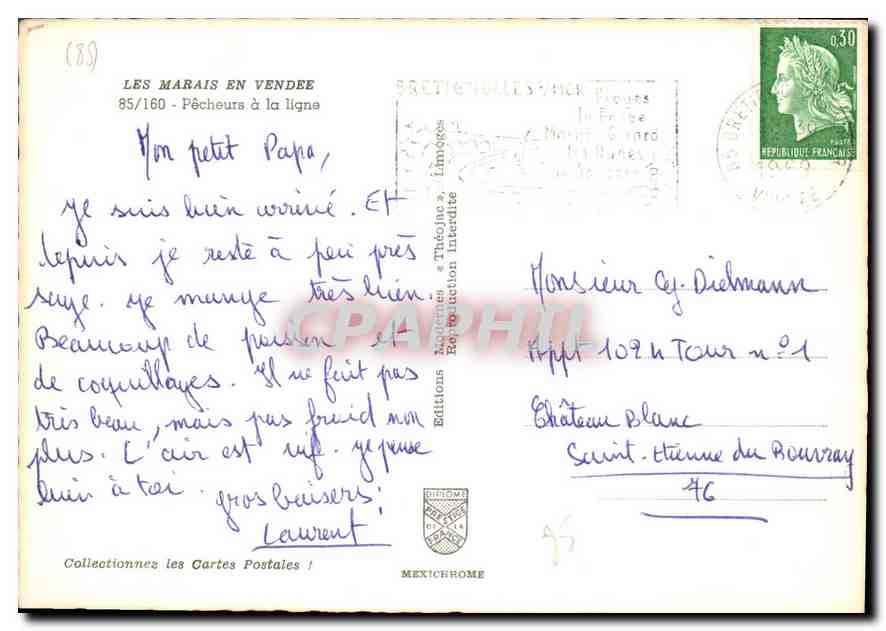 (85)
LES MARAIS EN VENDEE
85/160 - Pêcheurs à la ligne
Mon petit Papa,
Je suis bien arrivé. Et
depuis je reste à peu près
sage. Je mange très bien.
Beaucoup de poisson et
de coquillages. Il ne fait pas
très beau, mais pas froid non
plus. L'air est vif. Je pense
bien à toi. gros baisers;
Laurent
Collectionnez les Cartes Postales !
Editions Modernes « Théojac », Limoges
Reproduction Interdite
DIPLOME
PRESTIGE
DE LA
FRANCE
MEXICHROME
BRETIGNOLLES S/MER
Plages
Dunes
0,30
POSTES
REPUBLIQUE FRANÇAISE
30
Monsieur Dielmann
Appt 102 Tour n°1
Château Blanc
Saint-Etienne du Rouvray
76
CPAPHIL